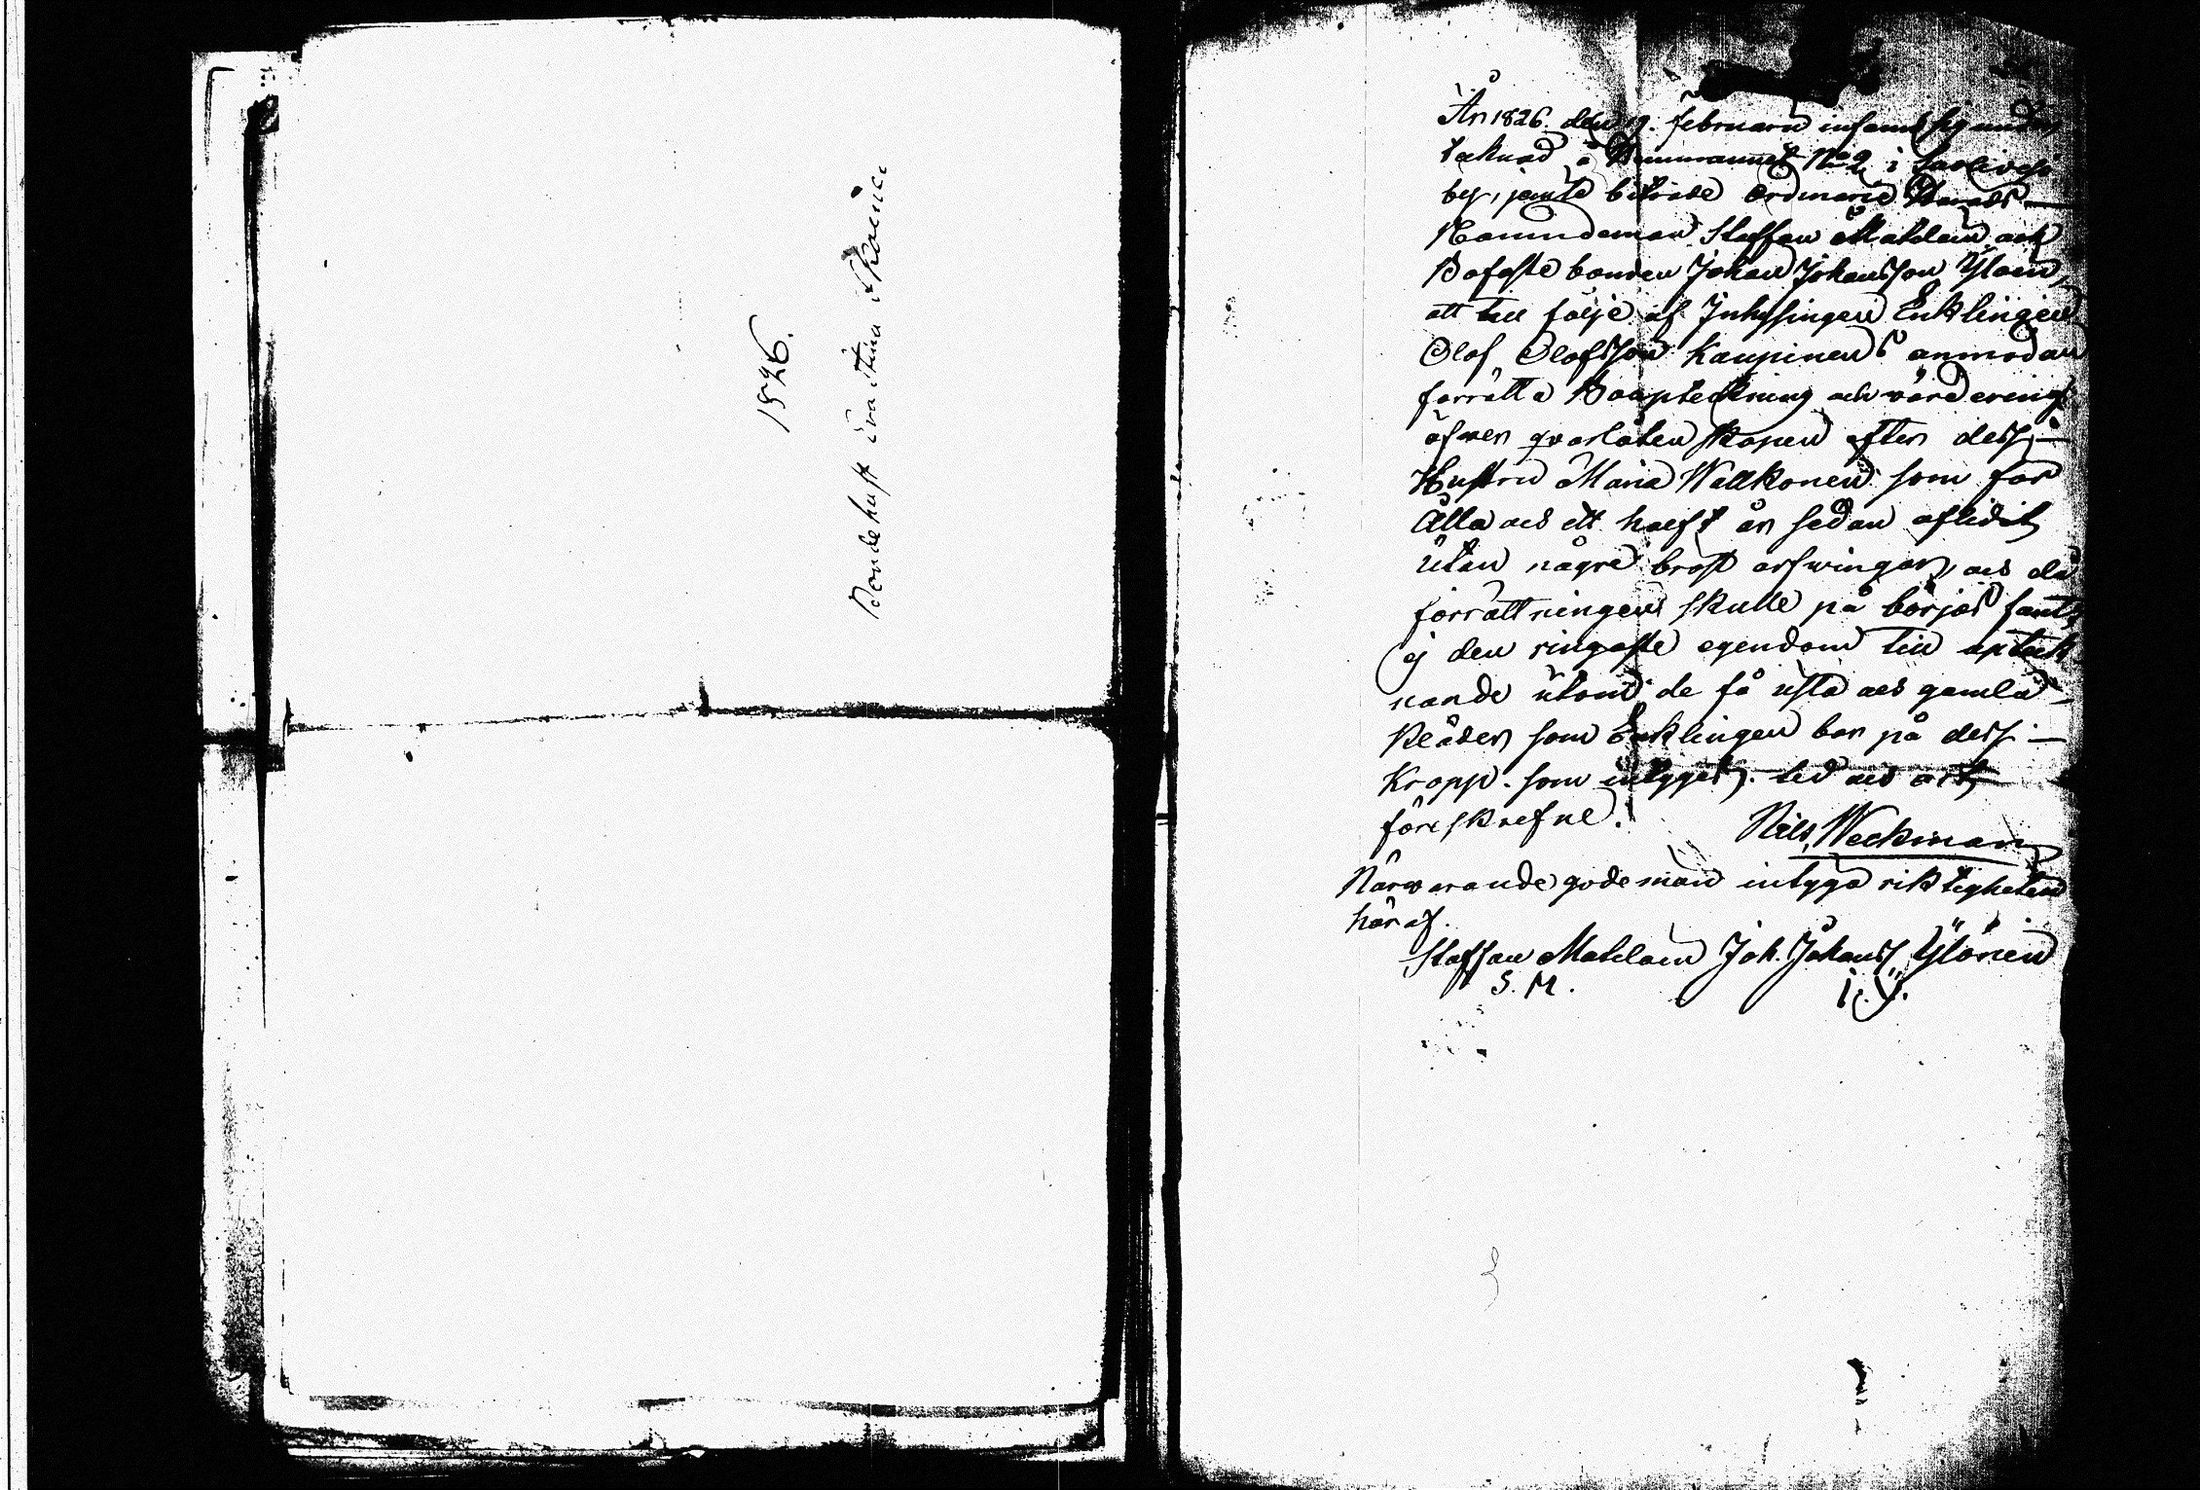 1826.
Bondehust Eva Stina
År 1826 den 19. februarii infant sig under
teknad å Hemmanet No 2 i
by, jemte biträde Ordinarie Härads
Nämndeman Staffan Matelain och
Bofaste bonden Johan Johansson Ylöin,
att till följe af Inhysingen Enklingen
Olof Olofsson Kaupinens anmodan
förrätta Bouptekning och värdering
öfwer qvarlåtenskapen efter dess
Hustru Maria Wallkonen som för
Åtta och ett half år sedan aflidit
utan någre bröst arfwingar, och då
förrättningen skulle på börjas fants
ej den ringaste egendom till uptek
nande utom de få usla och gamla
kläder som Enklingen bar på dess
kropp. som intygas. tid och ort
föreskrefne.
Nils Weckman
Närwarande gode män intyga riktigheten
häraf.
Staffan Matelain Joh. Johanss Ylöinen
S. M. I. Y.